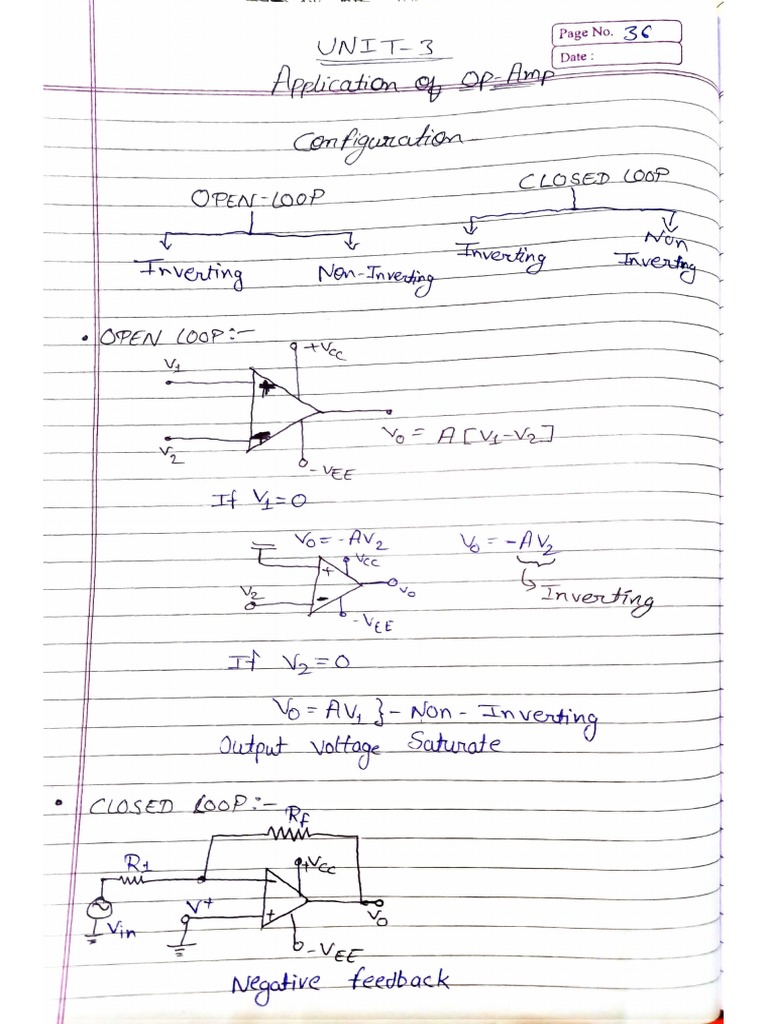 UNIT-3
Page No. 36
Date :
Application of Op-Amp
Configuration
OPEN-LOOP
CLOSED LOOP
Inverting
Non-Inverting
Inverting
Non
Inverting
• OPEN LOOP:-
+VCC
V1
+
-
V2
V0 = A[V1-V2]
-VEE
If V1=0
V0=-AV2
V0 = -AV2
VCC
+
-
V2
V0
-VEE
Inverting
If V2=0
V0=AV1 } - Non - Inverting
Output voltage Saturate
• CLOSED LOOP:-
Rf
R1
+VCC
-
V+
+
Vin
V0
-VEE
Negative feedback